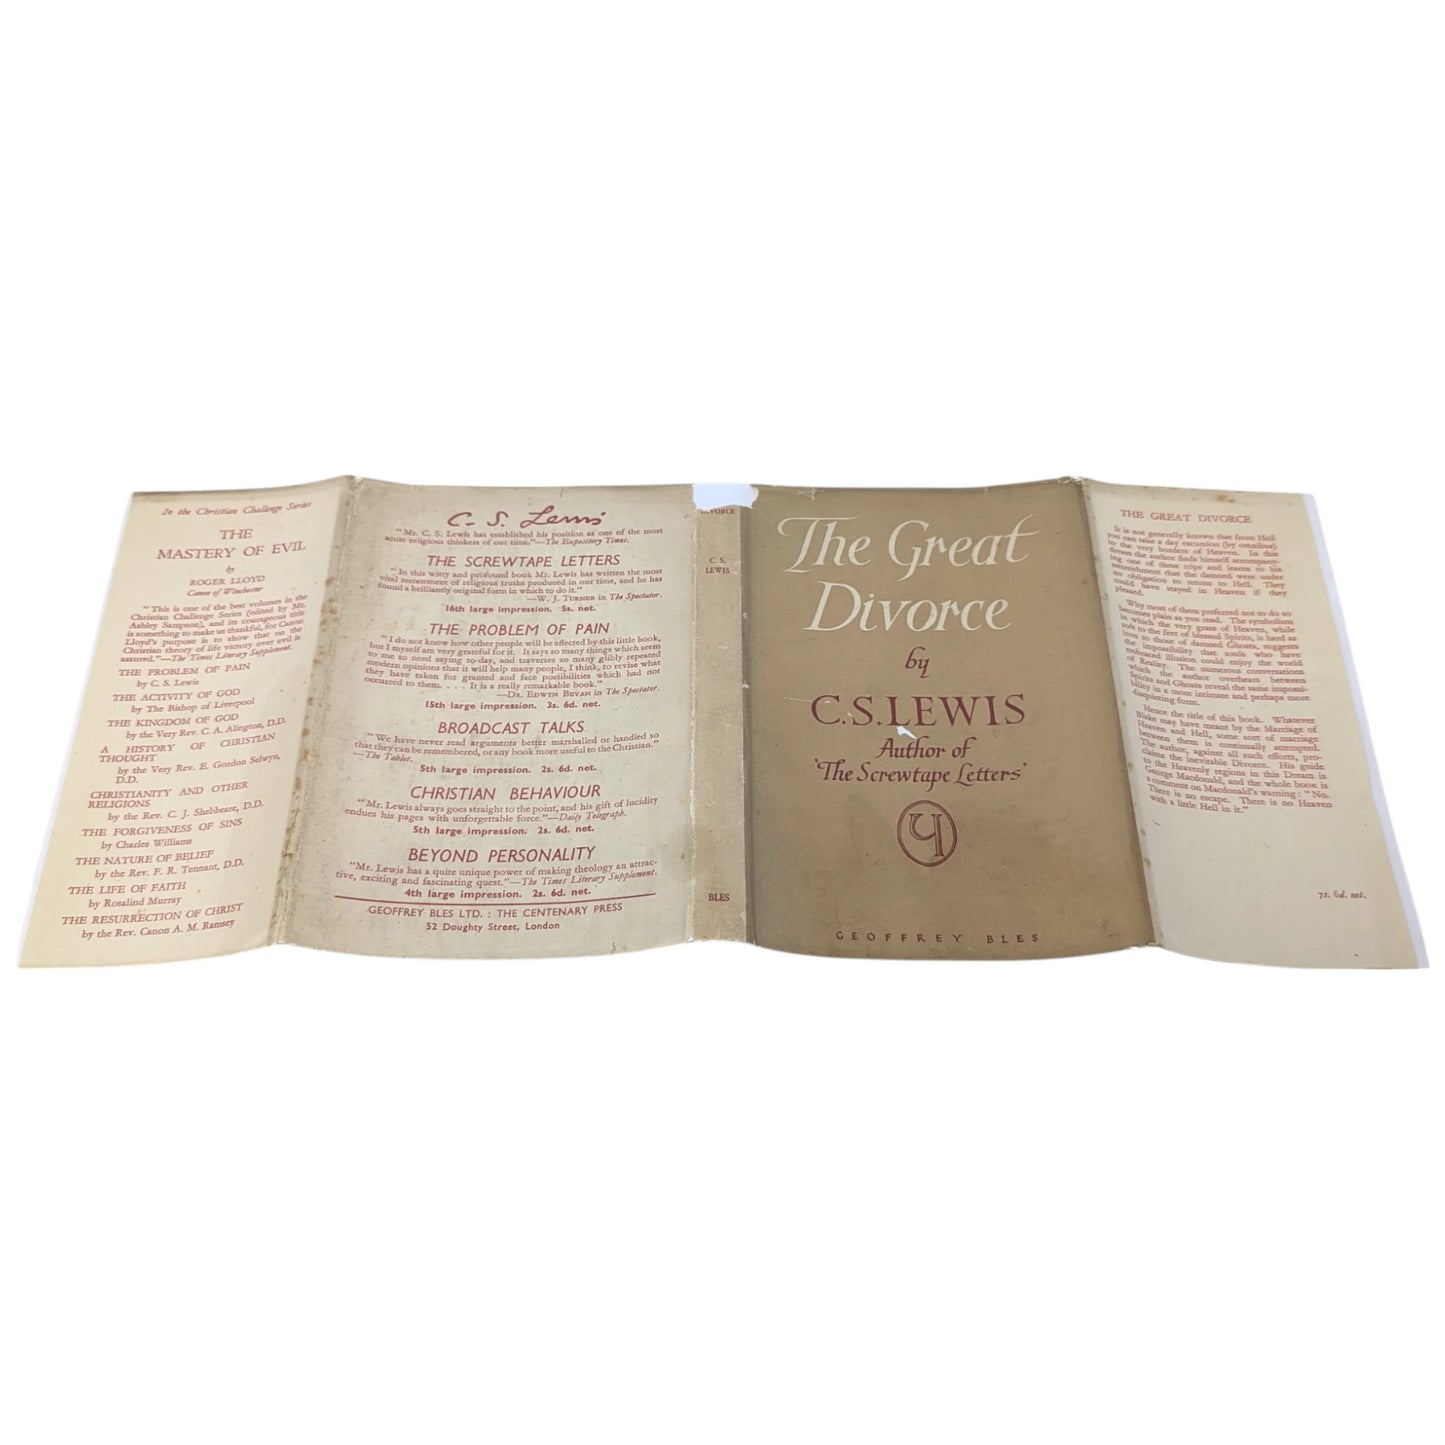 In the Christian Challenge Series
THE
MASTERY OF EVIL
by
ROGER LLOYD
Canon of Winchester
"This is one of the best volumes in the
Christian Challenge Series (edited by Mr.
Ashley Sampson), and its courageous title
is something to make us thankful, for Canon
Lloyd's purpose is to show that on the
Christian theory of life victory over evil is
assured."—The Times Literary Supplement.
THE PROBLEM OF PAIN
by C. S. Lewis
THE ACTIVITY OF GOD
by The Bishop of Liverpool
THE KINGDOM OF GOD
by the Very Rev. C. A. Alington, D.D.
A HISTORY OF CHRISTIAN
THOUGHT
by the Very Rev. E. Gordon Selwyn,
D.D.
CHRISTIANITY AND OTHER
RELIGIONS
by the Rev. C. J. Shebbeare, D.D.
THE FORGIVENESS OF SINS
by Charles Williams
THE NATURE OF BELIEF
by the Rev. F. R. Tennant, D.D.
THE LIFE OF FAITH
by Rosalind Murray
THE RESURRECTION OF CHRIST
by the Rev. Canon A. M. Ramsey
C. S. Lewis
"Mr. C. S. Lewis has established his position as one of the most
acute religious thinkers of our time."—The Expository Times.
THE SCREWTAPE LETTERS
"In this witty and profound book Mr. Lewis has written the most
vital restatement of religious truths produced in our time, and he has
found a brilliantly original form in which to do it."
—W. J. TURNER in The Spectator.
16th large impression. 5s. net.
THE PROBLEM OF PAIN
"I do not know how other people will be affected by this little book,
but I myself am very grateful for it. It says so many things which seem
to me to need saying to-day, and traverses so many glibly repeated
modern opinions that it will help many people, I think, to revise what
they have taken for granted and face possibilities which had not
occurred to them. . . . It is a really remarkable book."
—DR. EDWYN BEVAN in The Spectator.
15th large impression. 3s. 6d. net.
BROADCAST TALKS
"We have never read arguments better marshalled or handled so
that they can be remembered, or any book more useful to the Christian."
—The Tablet.
5th large impression. 2s. 6d. net.
CHRISTIAN BEHAVIOUR
"Mr. Lewis always goes straight to the point, and his gift of lucidity
endues his pages with unforgettable force."—Daily Telegraph.
5th large impression. 2s. 6d. net.
BEYOND PERSONALITY
"Mr. Lewis has a quite unique power of making theology an attrac-
tive, exciting and fascinating quest."—The Times Literary Supplement.
4th large impression. 2s. 6d. net.
GEOFFREY BLES LTD. : THE CENTENARY PRESS
52 Doughty Street, London
DIVORCE
C. S.
LEWIS
BLES
The Great
Divorce
by
C.S. LEWIS
Author of
'The Screwtape Letters'
GEOFFREY BLES
THE GREAT DIVORCE
It is not generally known that from Hell
you can take a day excursion (by omnibus)
to the very borders of Heaven. In this
dream the author finds himself accompany-
ing one of these trips and learns to his
astonishment that the damned were under
no obligation to return to Hell. They
could have stayed in Heaven if they
pleased.
Why most of them preferred not to do so
becomes plain as you read. The symbolism
in which the very grass of Heaven, while
soft to the feet of blessed Spirits, is hard as
iron to those of damned Ghosts, suggests
the impossibility that souls who have
embraced illusion could enjoy the world
of Reality. The numerous conversations
which the author overhears between
Spirits and Ghosts reveal the same impossi-
bility in a more intimate and perhaps more
disquieting form.
Hence the title of this book. Whatever
Blake may have meant by the Marriage of
Heaven and Hell, some sort of marriage
between them is continually attempted.
The author, against all such efforts, pro-
claims the inevitable Divorce. His guide
to the Heavenly regions in this Dream is
George Macdonald, and the whole book is
a comment on Macdonald's warning: "No.
There is no escape. There is no Heaven
with a little Hell in it."
7s. 6d. net.